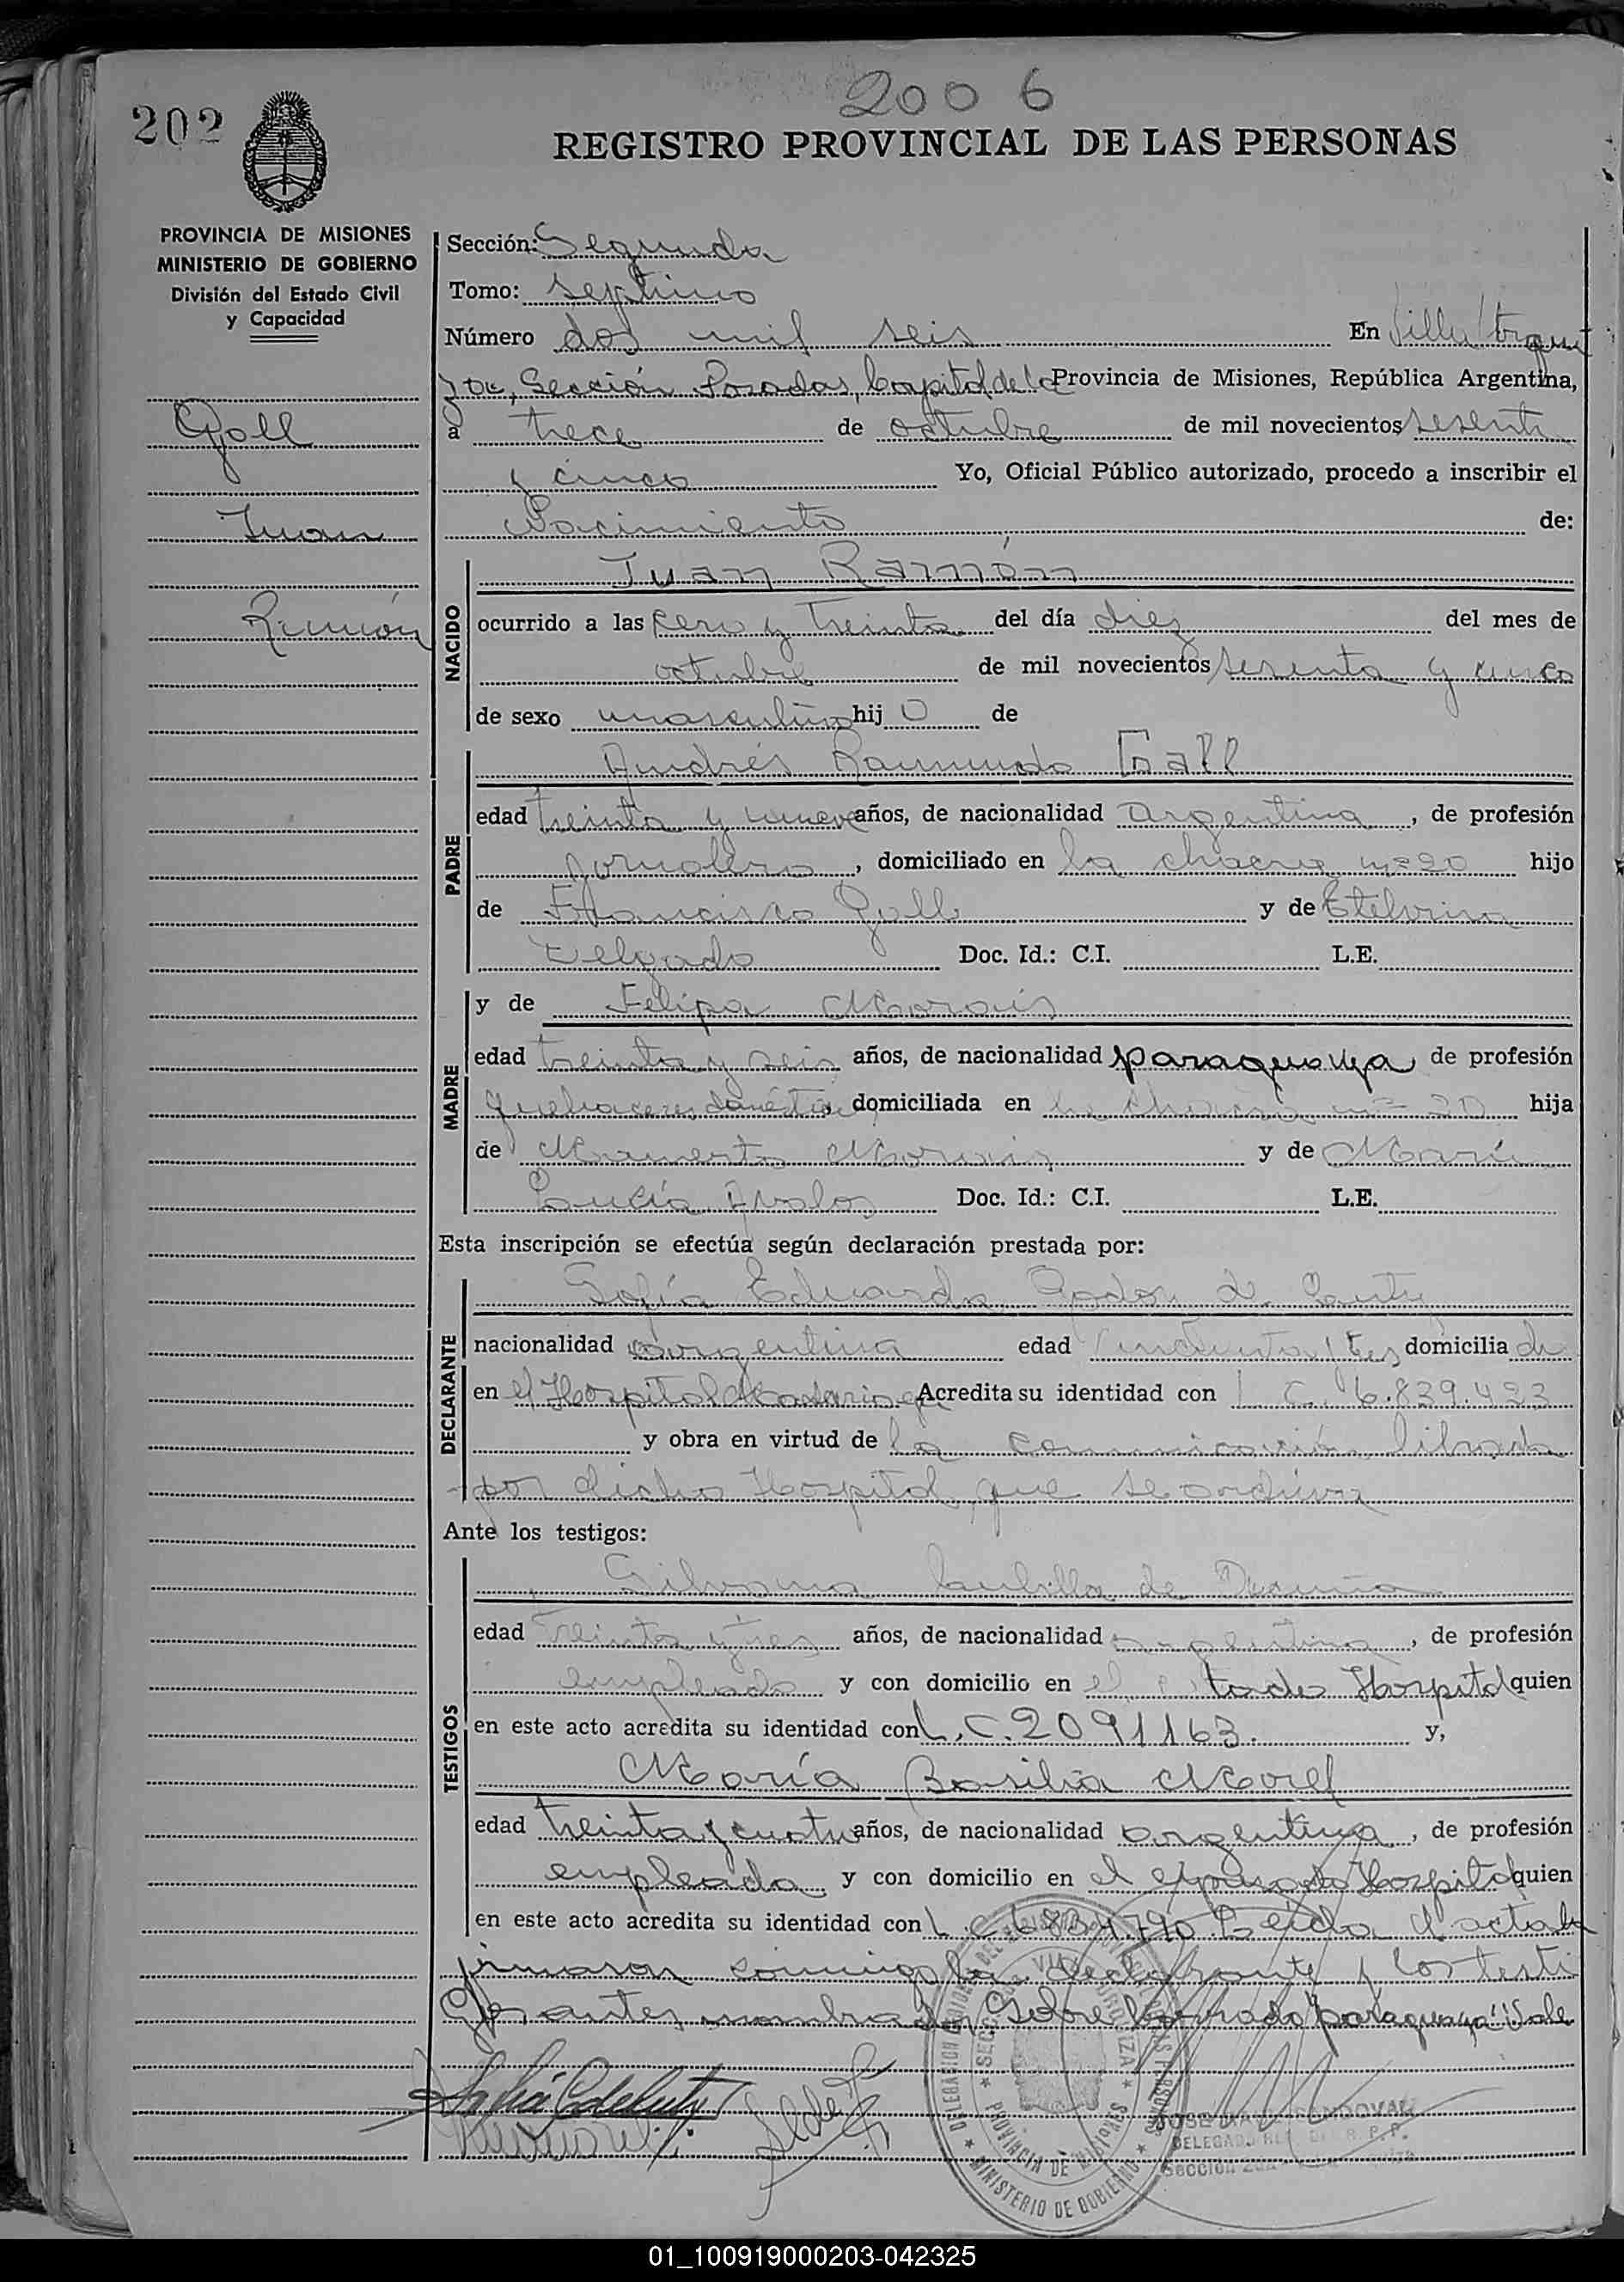 2006
202
REGISTRO PROVINCIAL DE LAS PERSONAS
PROVINCIA DE MISIONES
MINISTERIO DE GOBIERNO
División del Estado Civil
y Capacidad
Goll
Juan
Ramón
Sección: Segunda
Tomo: septimo
Número dos mil seis En Villa Urqui
za, Sección Posadas, Capital de la Provincia de Misiones, República Argentina,
a trece de octubre de mil novecientos sesenta
y cinco Yo, Oficial Público autorizado, procedo a inscribir el
Nacimiento de:
NACIDO
Juan Ramón
ocurrido a las cero y treinta del día diez del mes de
octubre de mil novecientos sesenta y cinco
de sexo masculino hijo de
PADRE
Andrés Raimundo Gall
edad treinta y nueve años, de nacionalidad argentina, de profesión
jornalero, domiciliado en la chacra nº 20 hijo
de Francisco Goll y de Etelvina
Delgado Doc. Id.: C.I. L.E.
MADRE
y de Felipa Morais
edad treinta y seis años, de nacionalidad paraguaya de profesión
quehaceres domésticos domiciliada en la chacra nº 20 hija
de Mamerto Morais y de María
Lucía Avalos Doc. Id.: C.I. L.E.
Esta inscripción se efectúa según declaración prestada por:
DECLARANTE
Sofía Eduarda de
nacionalidad argentina edad cincuenta y tres domiciliada
en el Hospital Madariaga Acredita su identidad con L C. 6.839.423
y obra en virtud de la comunicación librada
por dicho Hospital, que se archiva
Ante los testigos:
TESTIGOS
Silvana de
edad treinta y tres años, de nacionalidad argentina, de profesión
empleada y con domicilio en el citado Hospital quien
en este acto acredita su identidad con L.C. 2091163. y,
María Basilia Morel
edad treinta y cuatro años, de nacionalidad argentina, de profesión
empleada y con domicilio en el expresado Hospital quien
en este acto acredita su identidad con L.C. 6834.790. Leida el acta la
firmaron conmigo la declarante y los testi
gos antes nombrados. Sobre borrado "paraguaya": Vale
DELEGACION REGISTRO PROVINCIAL DE LAS PERSONAS
SECCION 2da VILLA URQUIZA
PROVINCIA DE MISIONES
MINISTERIO DE GOBIERNO
JOSE SANDOVAL
DELEGADO DEL R. P. P.
Sección 2da
01_100919000203-042325